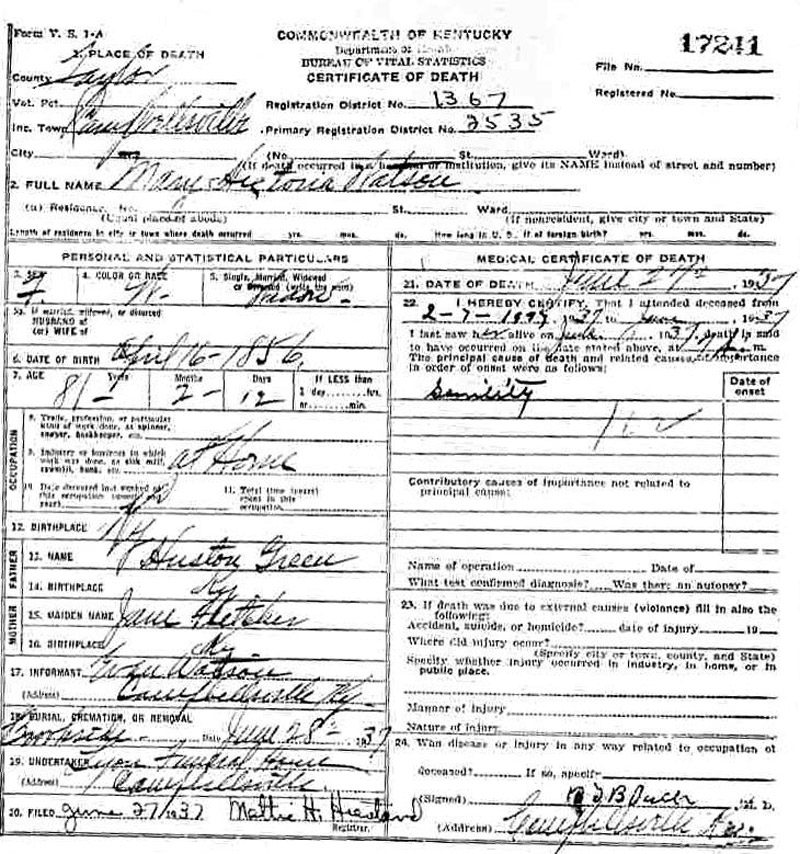 Form V. S. 1-A
COMMONWEALTH OF KENTUCKY
17241
1. PLACE OF DEATH
Department of Health
BUREAU OF VITAL STATISTICS
CERTIFICATE OF DEATH
File No.
County Taylor
Registered No.
Vot. Pct.
Registration District No. 1367
Inc. Town Campbellsville
Primary Registration District No. 2535
City (No. St. Ward)
(If death occurred in a hospital or institution, give its NAME instead of street and number)
2. FULL NAME Mary Watson
(a) Residence. No. St. Ward
(Usual place of abode) (If nonresident, give city or town and State)
Length of residence in city or town where death occurred yrs. mos. ds. How long in U. S., if of foreign birth? yrs. mos. ds.
PERSONAL AND STATISTICAL PARTICULARS
3. SEX F. 4. COLOR OR RACE W. 5. Single, Married, Widowed or Divorced (write the word) Widow
5a. If married, widowed, or divorced
HUSBAND of
(or) WIFE of
6. DATE OF BIRTH April 16-1856
7. AGE Years Months Days If LESS than
81 2 12 1 day hrs.
or min.
OCCUPATION
8. Trade, profession, or particular
kind of work done, as spinner,
sawyer, bookkeeper, etc.
9. Industry or business in which
work was done, as silk mill,
sawmill, bank, etc. at Home
10. Date deceased last worked at
this occupation (month and
year)
11. Total time (years)
spent in this
occupation
12. BIRTHPLACE Ky
FATHER
13. NAME Huston Green
14. BIRTHPLACE Ky
MOTHER
15. MAIDEN NAME Jane Fletcher
16. BIRTHPLACE Ky
17. INFORMANT Watson
(Address) Campbellsville Ky.
18. BURIAL, CREMATION, OR REMOVAL
Date June 28 1937
19. UNDERTAKER Funeral Home
(Address) Campbellsville
20. FILED June 27 1937 Mattie H.
Registrar.
MEDICAL CERTIFICATE OF DEATH
21. DATE OF DEATH June 27th, 1937
22. I HEREBY CERTIFY, That I attended deceased from
2-7- 1937 to June 1937
I last saw her alive on June 1937, death is said
to have occurred on the date stated above, at m.
The principal cause of death and related causes of importance
in order of onset were as follows:
Date of
onset
Senility
162
Contributory causes of importance not related to
principal cause:
Name of operation Date of
What test confirmed diagnosis? Was there an autopsy?
23. If death was due to external causes (violence) fill in also the
following:
Accident, suicide, or homicide? date of injury 19
Where did injury occur?
(Specify city or town, county, and State)
Specify whether injury occurred in industry, in home, or in
public place.
Manner of injury
Nature of injury
24. Was disease or injury in any way related to occupation of
deceased? If so, specify
(Signed) M. D.
(Address) Campbellsville Ky.